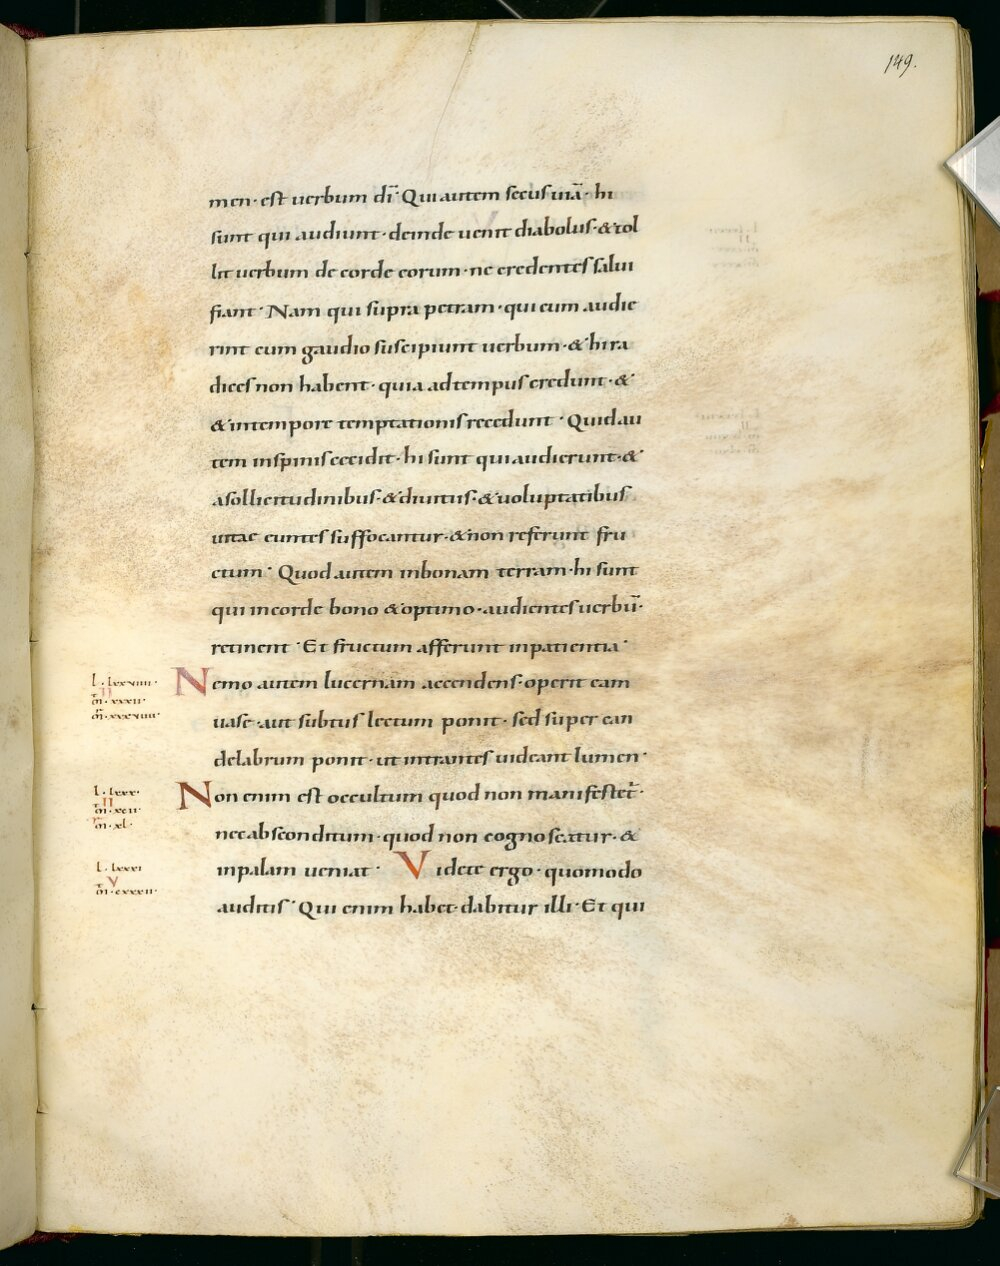 149.
men· est uerbum dī· Qui autem secus uiā· hi
sunt qui audiunt· deinde uenit diabolus· & tol
lit uerbum de corde eorum· ne credentes salui
fiant· Nam qui supra petram· qui cum audie
rint cum gaudio suscipiunt uerbum· & hi ra
dices non habent· quia ad tempus credunt· &
& in tempore temptationis recedunt· Quod au
tem in spinis cecidit· hi sunt qui audierunt· &
a sollicitudinibus· & diuitiis· & uoluptatibus
uitae euntes suffocantur· & non referunt fru
ctum· Quod autem in bonam terram· hi sunt
qui in corde bono & optimo· audientes uerbū·
retinent· Et fructum afferunt in patientia·
l· lxxviiii·
II
m̄· xxxii·
m̄· xxxviiii·
Nemo autem lucernam accendens· operit eam
uase· aut subtus lectum ponit· sed super can
delabrum ponit· ut intrantes uideant lumen·
l· lxxx·
II
m̄· xcii·
m̄· xl·
Non enim est occultum quod non manifestet̄·
nec absconditum· quod non cognoscatur· &
in palam ueniat· Videte ergo· quomodo
l· lxxxi
V
m̄· cxxxii·
auditis· Qui enim habet· dabitur illi· Et qui